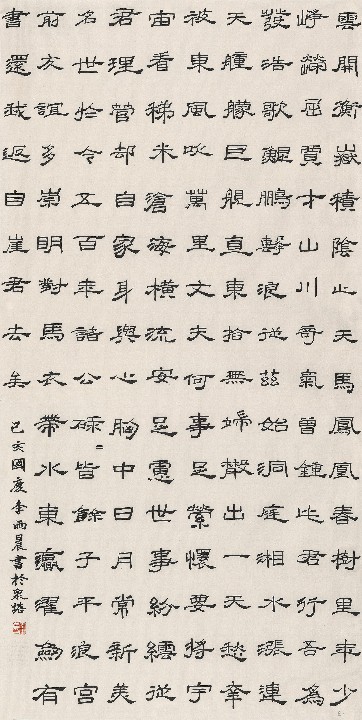 雲開衡嶽積陰止天馬鳳凰春樹里年少
崢嶸屈賈才山川奇氣曾鍾此君行吾為
發浩歌鯤鵬擊浪從茲始洞庭湘水漲連
天艟艨巨艦直東指無端散出一天愁幸
被東風吹萬里丈夫何事足縈懷要將宇
宙看稊米滄海橫流安足慮世事紛紜從
君理管却自家身與心胸中日月常新美
名世於今五百年諸公碌々皆餘子平浪宮
前友誼多崇明對馬衣帶水東瀛濯劍有
書還我返自崖君去矣
己亥國慶李雨晨書於